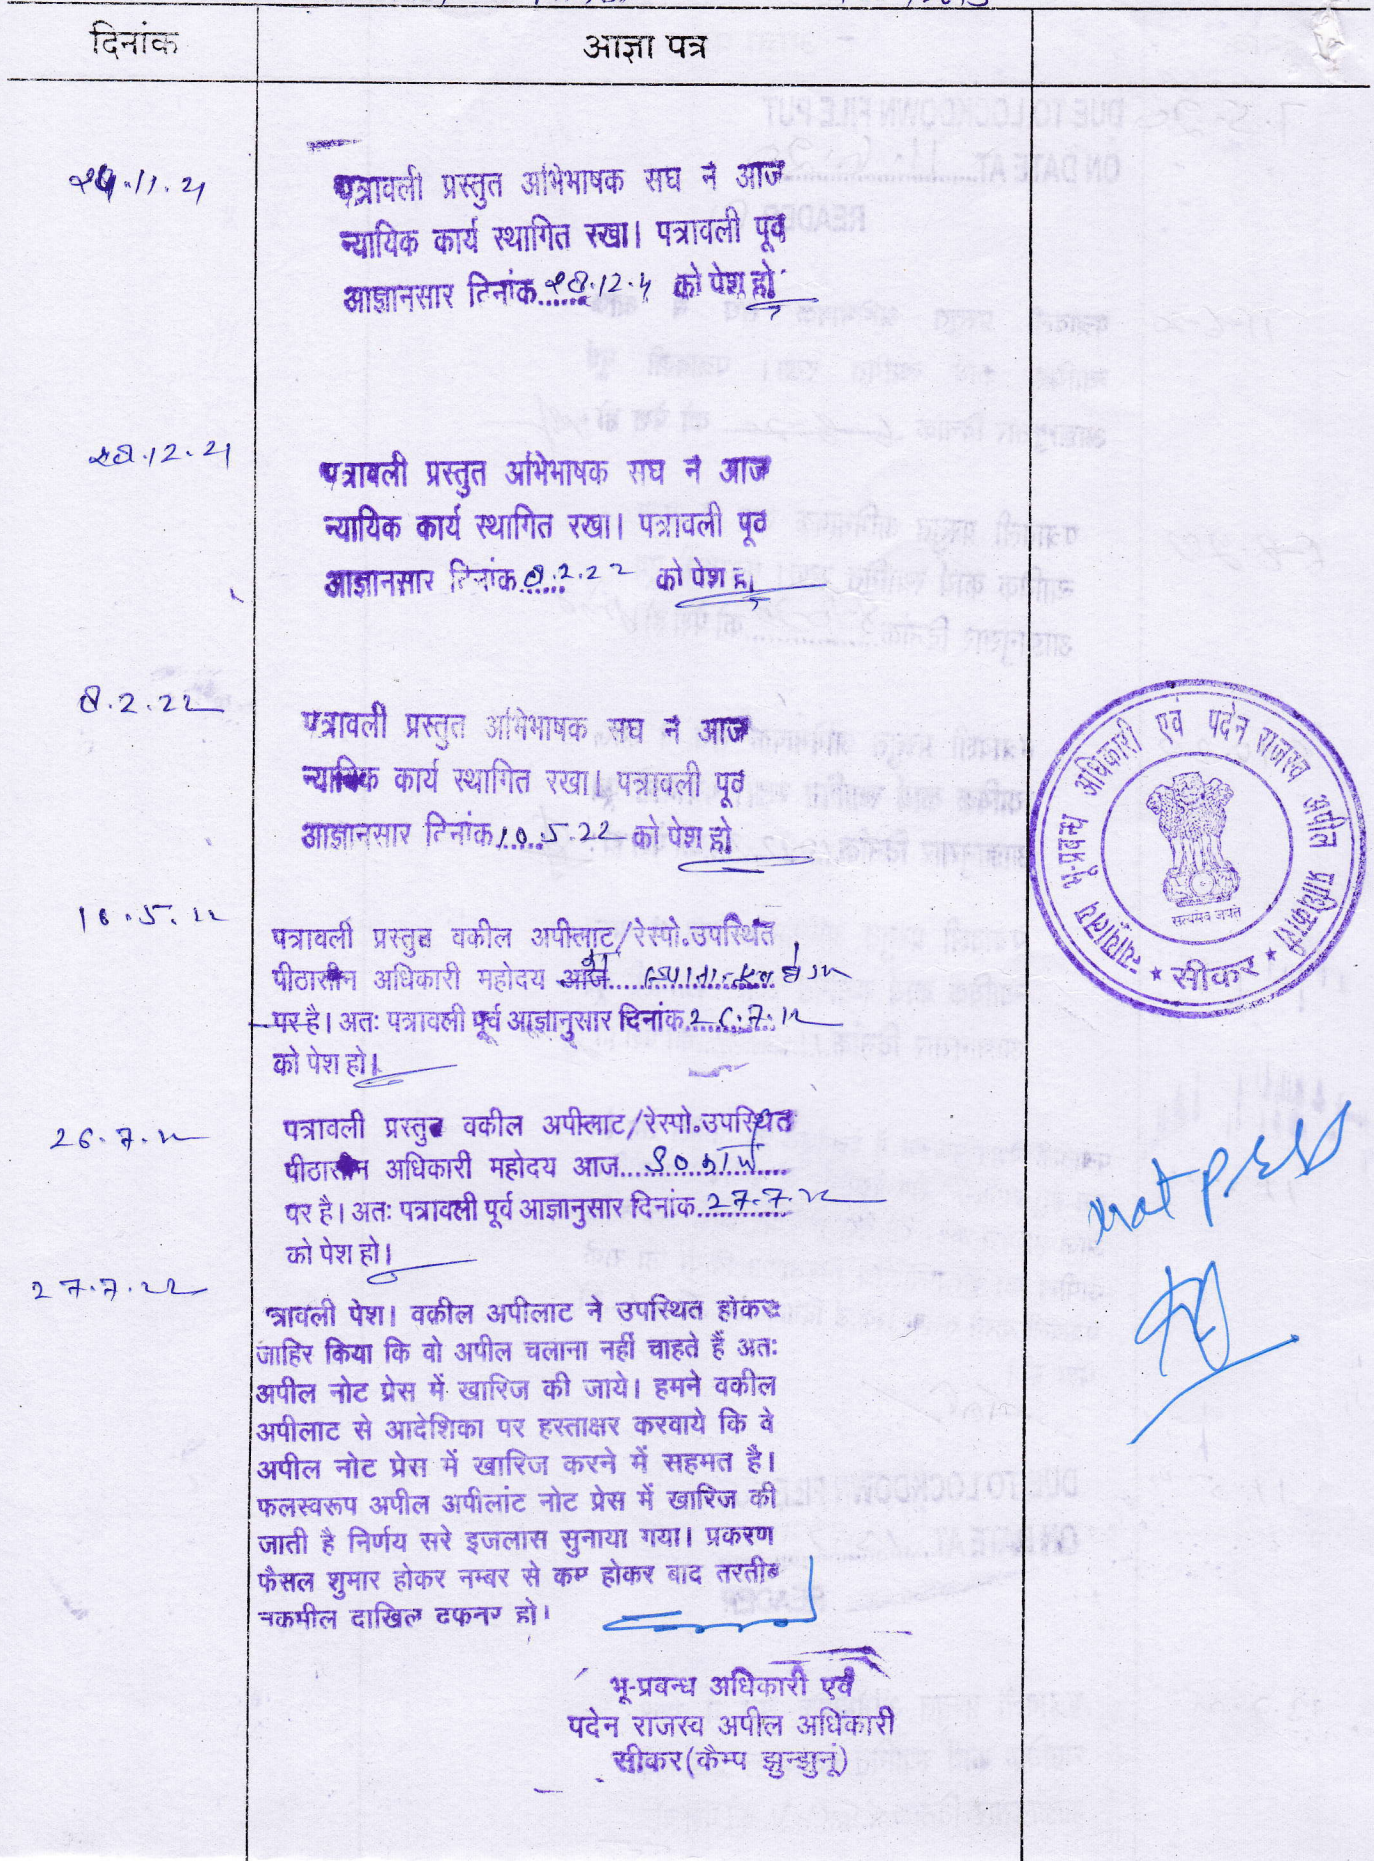 दिनांक
आज्ञा पत्र
24.11.21
पत्रावली प्रस्तुत अभिभाषक सघ न आज
न्यायिक कार्य स्थागित रखा। पत्रावली पूव
आज्ञानसार दिनांक...... को पेश हो
28.12.21
पत्रावली प्रस्तुत अभिभाषक सघ न आज
न्यायिक कार्य स्थागित रखा। पत्रावली पूव
आज्ञानसार दिनांक 8.2.22 को पेश हो
8.2.22
पत्रावली प्रस्तुत अभिभाषक सघ न आज
न्यायिक कार्य स्थागित रखा। पत्रावली पूव
आज्ञानसार दिनांक 10.5.22 को पेश हो
न्यायालय भू-प्रबन्ध अधिकारी एवं पदेन राजस्व अपील प्राधिकारी
सत्यमेव जयते
★ सीकर ★
10.5.22
पत्रावली प्रस्तुत वकील अपीलाट/रेस्पो.उपस्थित
पीठासीन अधिकारी महोदय आज
पर है। अतः पत्रावली पूर्व आज्ञानुसार दिनांक 26.7.22
को पेश हो।
26.7.22
पत्रावली प्रस्तुत वकील अपीलाट/रेस्पो.उपस्थित
पीठासीन अधिकारी महोदय आज......
पर है। अतः पत्रावली पूर्व आज्ञानुसार दिनांक 27.7.22
को पेश हो।
not press
27.7.22
त्रावली पेश। वकील अपीलाट ने उपस्थित होकर
जाहिर किया कि वो अपील चलाना नहीं चाहते हैं अतः
अपील नोट प्रेस में खारिज की जाये। हमने वकील
अपीलाट से आदेशिका पर हस्ताक्षर करवाये कि वे
अपील नोट प्रेस में खारिज करने में सहमत है।
फलस्वरूप अपील अपीलांट नोट प्रेस में खारिज की
जाती है निर्णय सरे इजलास सुनाया गया। प्रकरण
फैसल शुमार होकर नम्बर से कम होकर बाद तरतीब
तकमील दाखिल दफतर हो।
भू-प्रबन्ध अधिकारी एवं
पदेन राजस्व अपील अधिकारी
सीकर(कैम्प झुन्झुनूं)